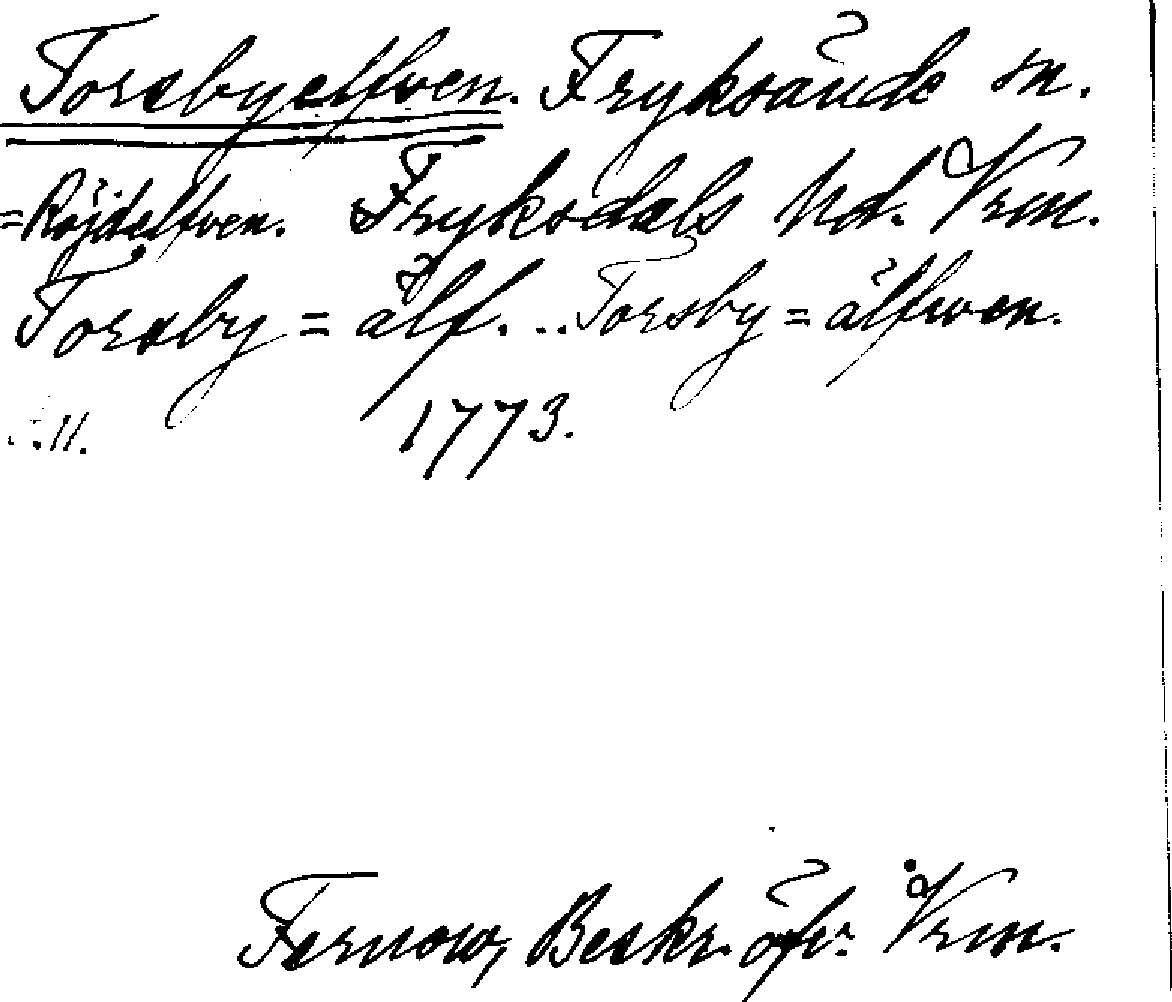 Torsbyelfven. Fryksände sn.
=Röjdelfven. Fryksdals hd. Vrm.
Torsby=älf... Torsby=älfwen.
.11. 1773.
Fernow, Beskr. öfv. Vrm.